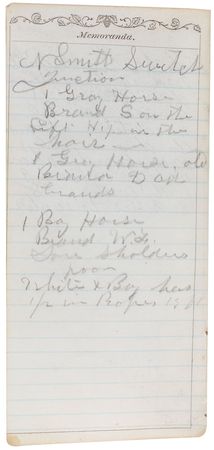 Memoranda.
N Smith Switch
Junction
1 Gray Horse
Brand S on the
Left Hip in the
1 Gray Horse, old
Brand D
brands
1 Bay Horse
Brand W.
Sore Sholders
poor
White & Bay hers
in Ropes